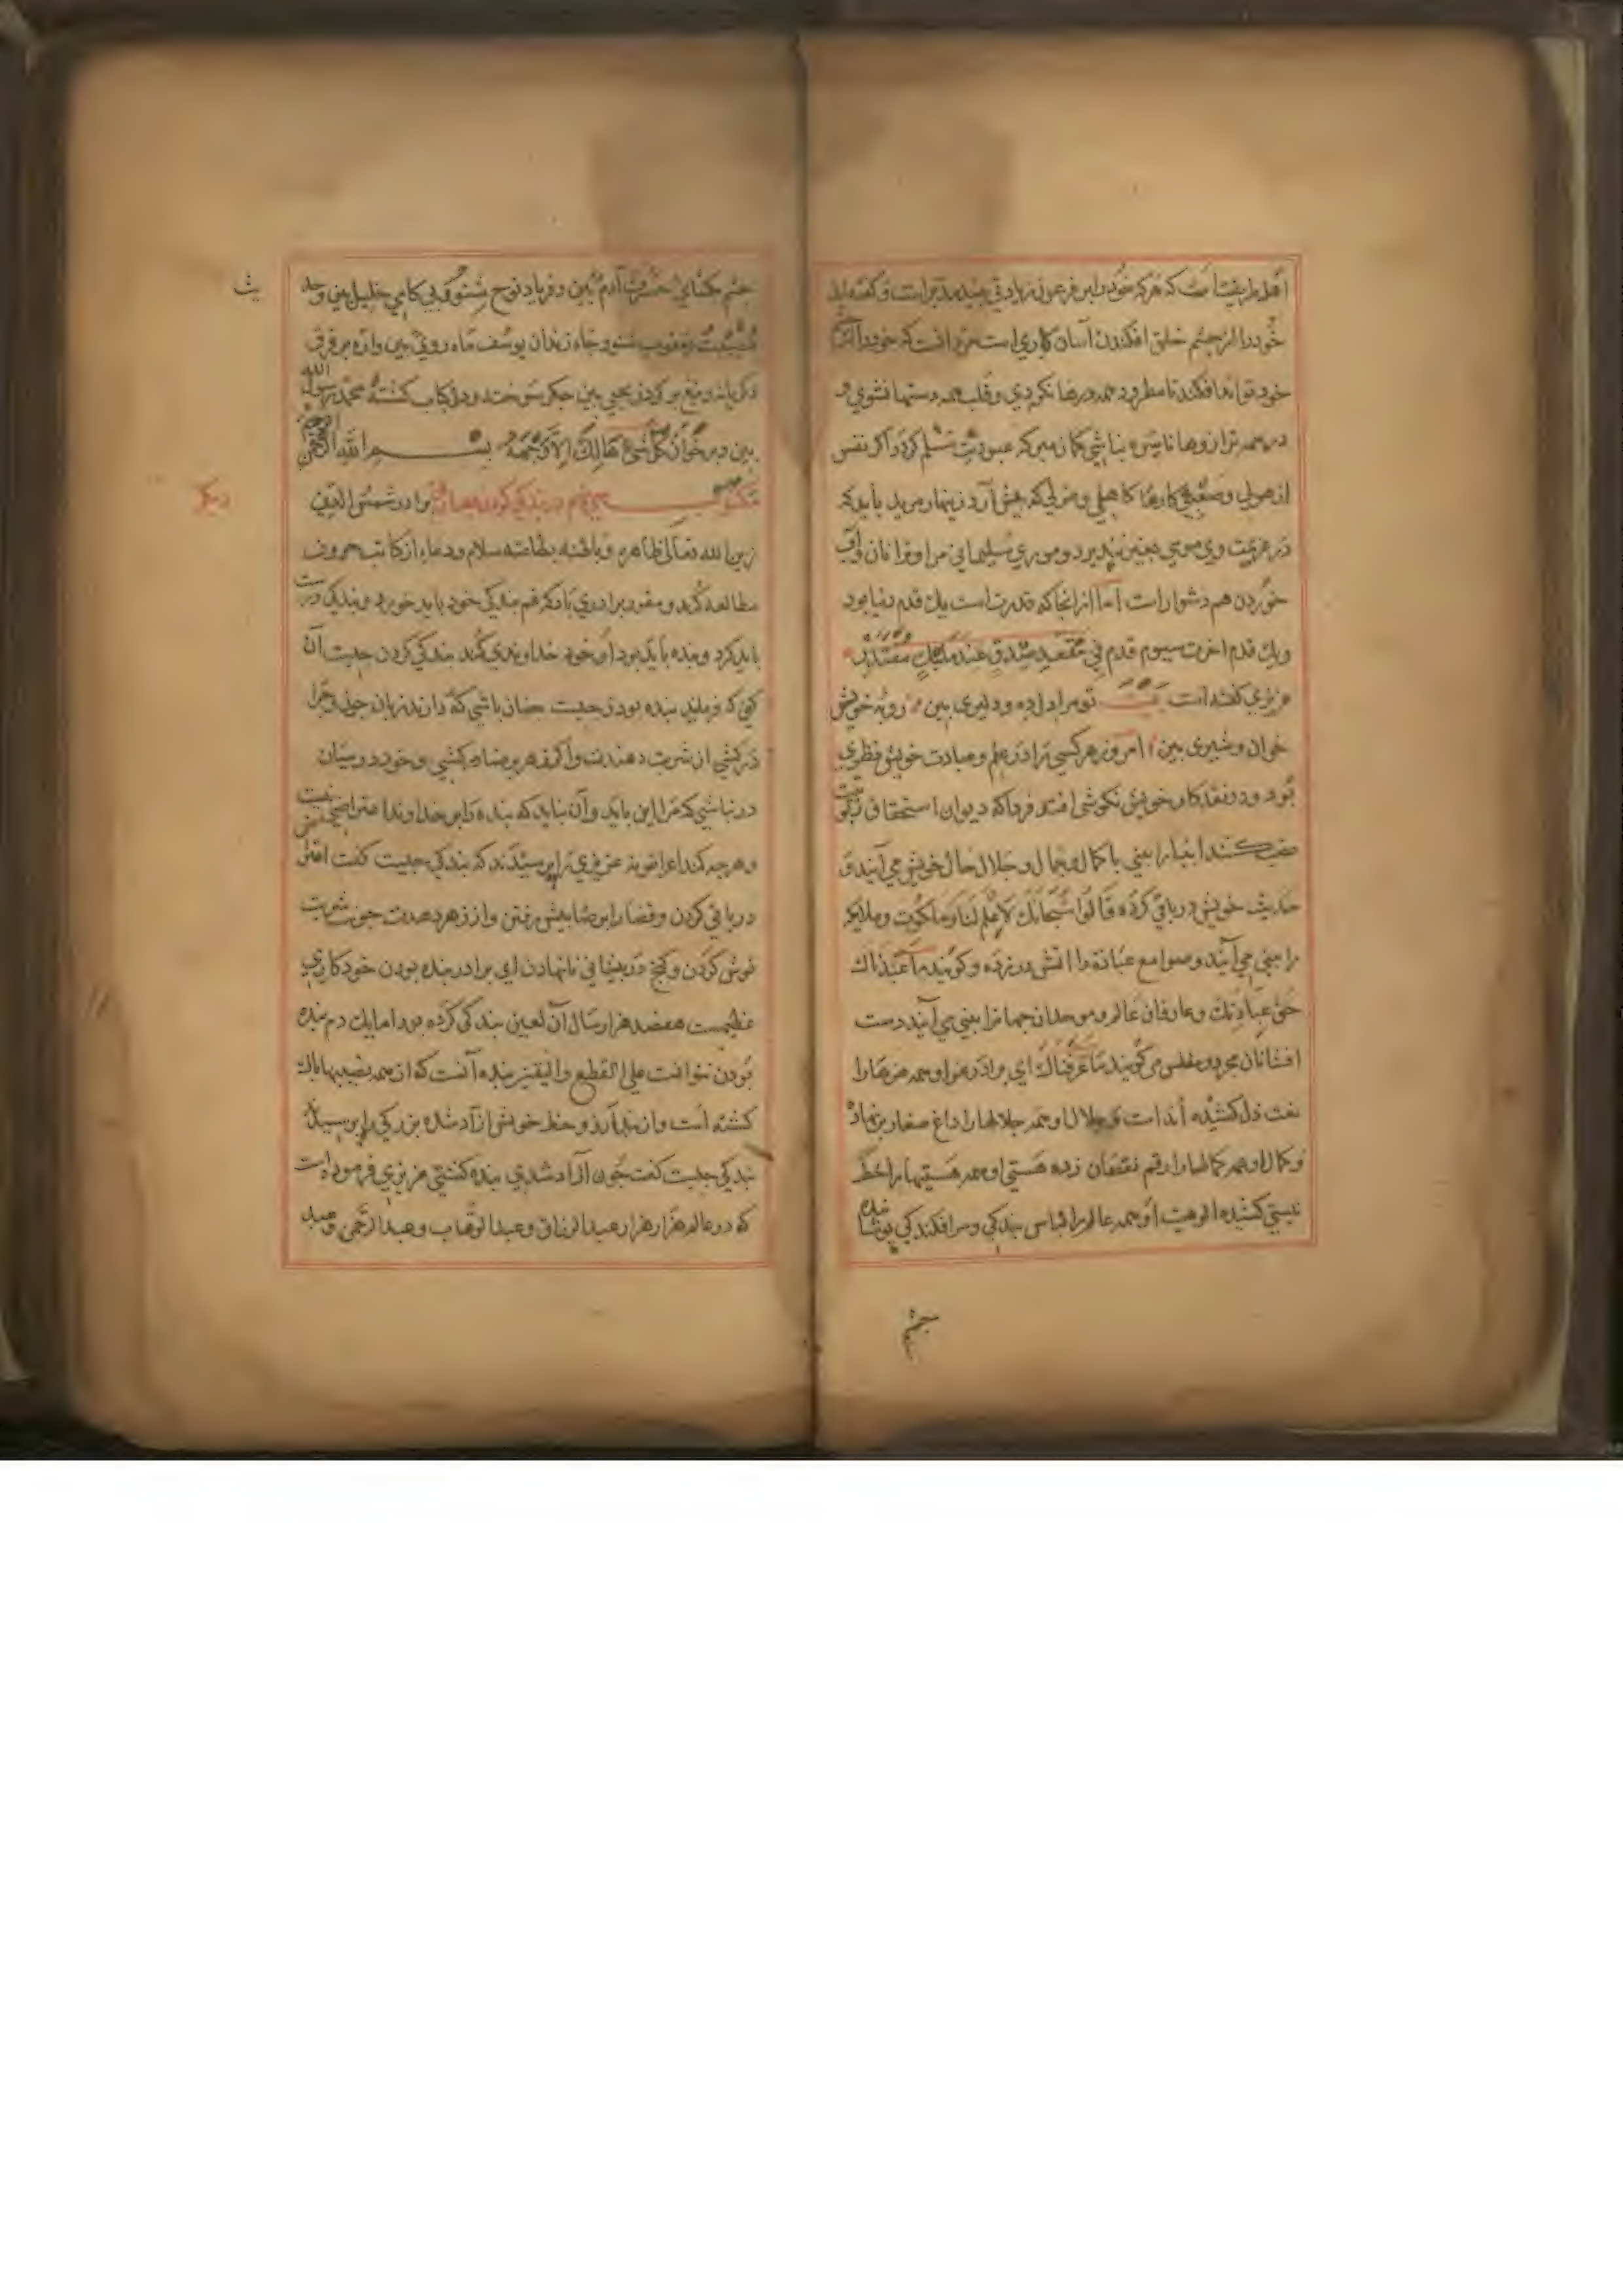 اهل طریقت است که هرکه خود را بر فرعون زیادتی بیند متکبر است و گفته اند
خود را از چشم خلق افکندن آسان کاری است مرد آنست که خود را از چشم
خود تواند افکند تا مطرود همه درها نکردی و قلب همه دستها نشوی و
در همه ترازوها ناسره نباشی کمان مبر که عبودیت تسلیم کرد و اکر نفس
از هولی و صعبی کارها کاهلی و منزلی که پیش آرد زینهار مرید باید که
در عزیمت وی موسی چنین نپذیرد و موری سلیمانی مرا و ترا نان
خوردن هم دشوار است اما از انجا که قدرت است یک قدم دنیا بود
و یک قدم اخرت سیوم قدم فی مقعد صدق عند ملیک مقتدر
عزیزی گفته است بیت تو مرا دل ده و دلیری بین روبه خویش
خوان و شیری بین امروز هر کسی را در علم و عبادت خویش نظری
بود و در نقد کار خویش نکوشی افتد فردا که دیوان استحقاق ربوبیت
نصب کنند انبیا را بینی با کمال و جمال و جلال حال خویش می آیند و
حدیث خویش در باقی کرده قالوا سبحانک لا علم لنا و ملکوت و ملایکه
را بینی می آیند و صوامع عبادة را اتش در زده و کویند ما عبدناک
حق عبادتک و عارفان عالم و موحدان جهانرا بینی می آیند دست
افشانان مجرد و مفلس می کویند ما عرفناک ای برادر عز او همه عزها را
نعت ذل کشیده است و جلال او همه جلالها را داغ صغار بر نهاد
و کمال او همه کمالها را رقم نقصان زده هستی او همه هستیها را خط
نیستی کشیده الوهیت او همه عالم را لباس بندکی و سرافکندکی پوشانیده
چشم
چشم بکشای حسرت آدم ببین و فریاد نوح بشنو و بی کامی خلیل بین و حد
مصیبت یعقوب بشنو و چاه و زندان یوسف ماه روی بین و اره بر فرق
زکریا و تیغ بر کردن یحیی بین جکر سوخته و دل کباب کشته محمد رسول الله
بین و بر خوان کل شیء هالک الا وجهه بسم الله الرحمن الرحیم
مکتوب پنجم در بندکی کردن برادر شمس الدین
زین الله تعالی ظاهره و باطنه بطاعته سلام و دعا از کاتب حروف
مطالعه کند و مقرر برادری باد که غم بندکی خود باید خورد و بندکی درست
باید کرد و بنده باید بود او خود خداوندی کند بندکی کردن چیست آن
کنی که فرماید بنده بودن چیست چنان باشی که دارند زبان چون و چرا
در کشی از شربت دهندت و اکر زهر برضا در کشی و خود در میان
در نباشی که مرا این باید و آن نباید که بنده را بر خداوند اعتراض نیست
و هرچه کند اعراض نه عزیزی را پرسیدند که بندکی چیست کفت اعتراض
در باقی کردن و قضا را برضا پیش رفتن و از زهر بعدت چون شربت
نوش کردن و کنج در بینایی نا نهادن ای برادر بنده بودن خود کاری
عظیمست هفتصد هزار سال آن لعین بندکی کرده بود اما یک دم بنده
بودن نتوانست علی القطع و الیقین بنده آنست که از همه نصیبها پاک
کشته است و از بند آرزو و حظ خویش آزاد شده بزرکی را پرسیدند
بندکی چیست کفت چون آزاد شدی بنده کشتی عزیزی فرموده است
که در عالم هزار هزار عبدالرزاق و عبدالوهاب و عبدالرحمن و عبد
دیکر